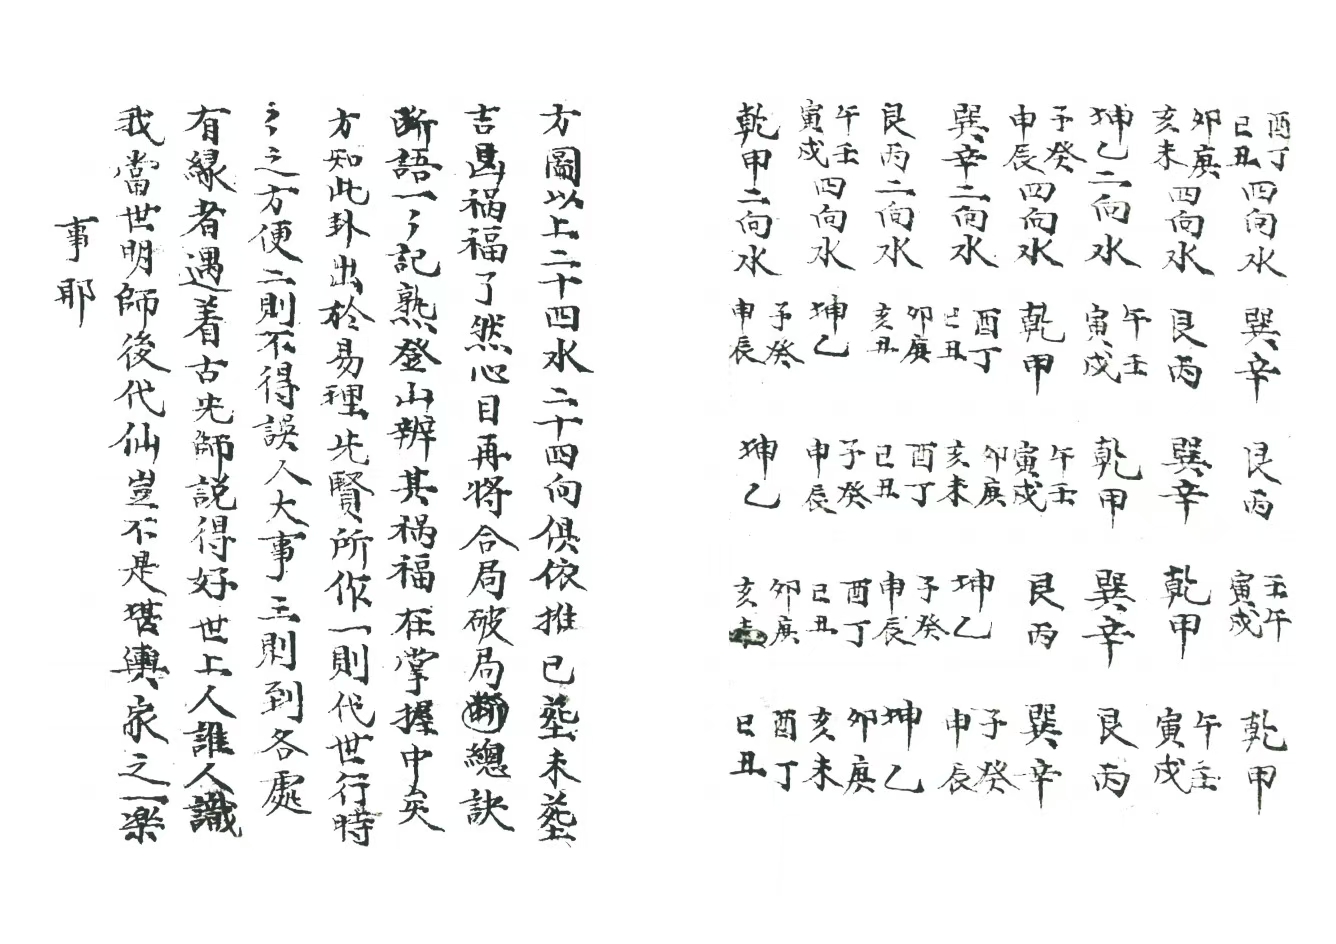 酉丁巳丑四向水 巽辛 艮丙 壬午寅戌 乾甲
卯庚亥未四向水 艮丙 巽辛 乾甲 午壬寅戌
坤乙二向水 午壬寅戌 乾甲 巽辛 艮丙
子癸申辰四向水 乾甲 午壬寅戌 艮丙 巽辛
巽辛二向水 酉丁巳丑 卯庚亥未 坤乙 子癸申辰
艮丙二向水 卯庚亥丑 酉丁巳丑 子癸申辰 坤乙
午壬寅戌四向水 坤乙 子癸申辰 酉丁巳丑 卯庚亥未
乾甲二向水 子癸申辰 坤乙 卯庚亥未 酉丁巳丑
方圖以上二十四水二十四向俱依推已塟未塟
吉凶禍福了然心目再將合局破局斷總訣
斷語一々記熟登山辨其禍福在掌握中矣
方知此卦出於易理先賢所作一則代世行時
々之方便二則不得誤人大事三則到各處
有緣者遇着古先師説得好世上人誰人識
我當世明師後代仙豈不是堪輿家之一樂
事耶